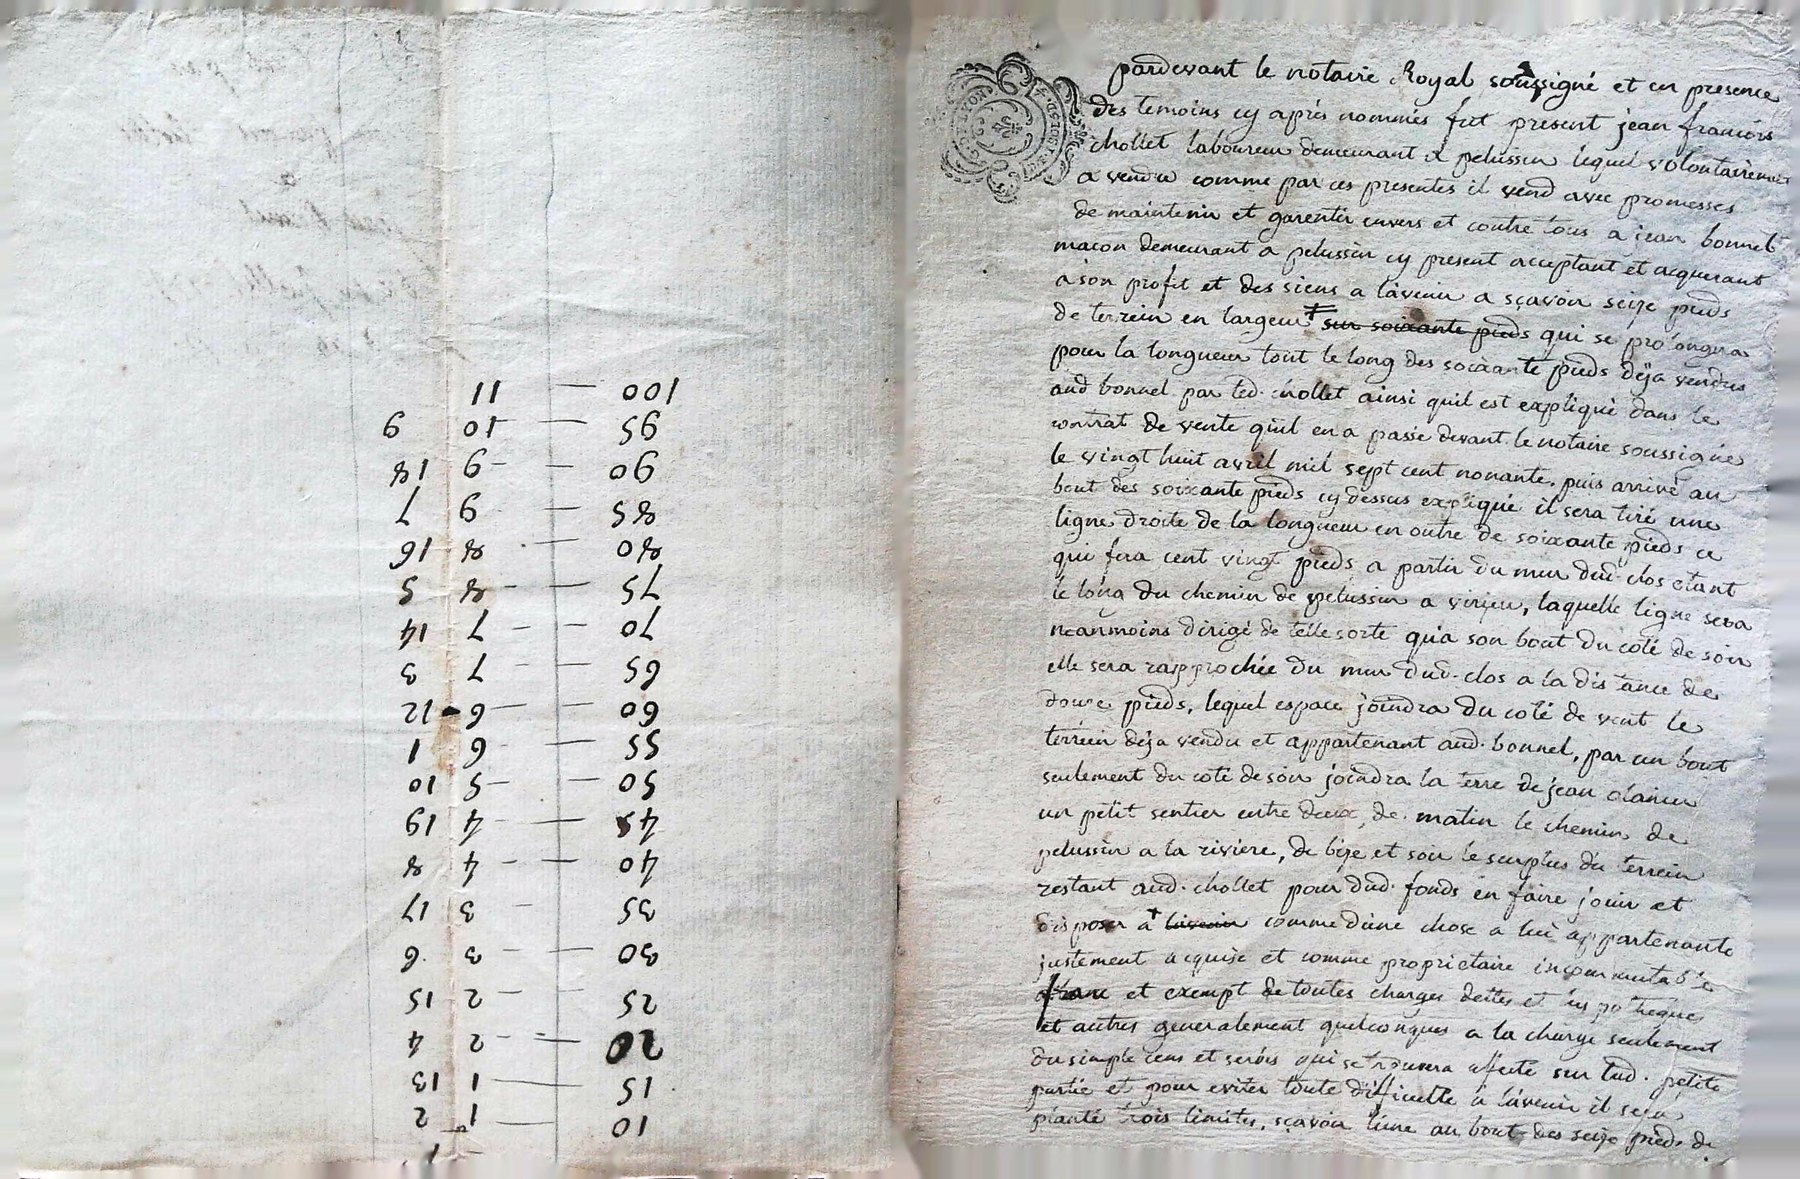 10 1 2
15 — 1 13
20 = 2 4
25 — 2 15
30 — 3 6
35 — 3 17
40 — 4 8
45 — 4 19
50 — 5 10
55 — 6 1
60 — 6 12
65 — 7 3
70 — 7 14
75 — 8 5
80 — 8 16
85 — 9 7
90 — 9 18
95 — 10 9
100 — 11
pardevant le notaire Royal soussigné et en presence
des temoins cy après nommés fut present jean francois
chollet laboureur demeurant a pelussin lequel volontairement
a vendu comme par ces presentes il vend avec promesses
de maintenir et garentir envers et contre tous a jean bonnel
macon demeurant a pelussin cy present acceptant et acquerant
a son profit et des siens a lavenir a sçavoir seize pieds
de terrein en largeur sur soixante pieds qui se prolongera
pour la longueur tout le long des soixante pieds deja vendus
aud bonnel par led. chollet ainsi quil est expliqué dans le
contrat de vente quil en a passé devant le notaire soussigné
le vingt huit avril mil sept cent nonante, puis arrivé au
bout des soixante pieds cy dessus expliqué il sera tiré une
ligne droite de la longueur en outre de soixante pieds ce
qui fera cent vingt pieds a partir du mur dud. clos etant
le long du chemin de pelussin a virieu, laquelle ligne sera
neanmoins dirigé de telle sorte qua son bout du coté de soir
elle sera rapprochée du mur dud. clos a la distance de
douze pieds, lequel espace joindra du coté de vent le
terrein deja vendu et appartenant aud. bonnel, par un bout
seulement du coté de soir joindra la terre de jean
un petit sentier entre deux, de matin le chemin de
pelussin a la riviere, de bize et soir le surplus du terrein
restant aud. chollet pour dud. fonds en faire jouir et
disposer a lavenir comme dune chose a lui appartenante
justement acquise et comme proprietaire incommutable
franc et exempt de toutes charges dettes et hypotheques
et autres generalement quelconques a la charge seulement
du simple cens et servis qui se trouvera affecté sur lad. petite
partie et pour eviter toute difficulté a lavenir il sera
planté trois limites, sçavoir lune au bout des seize pieds de